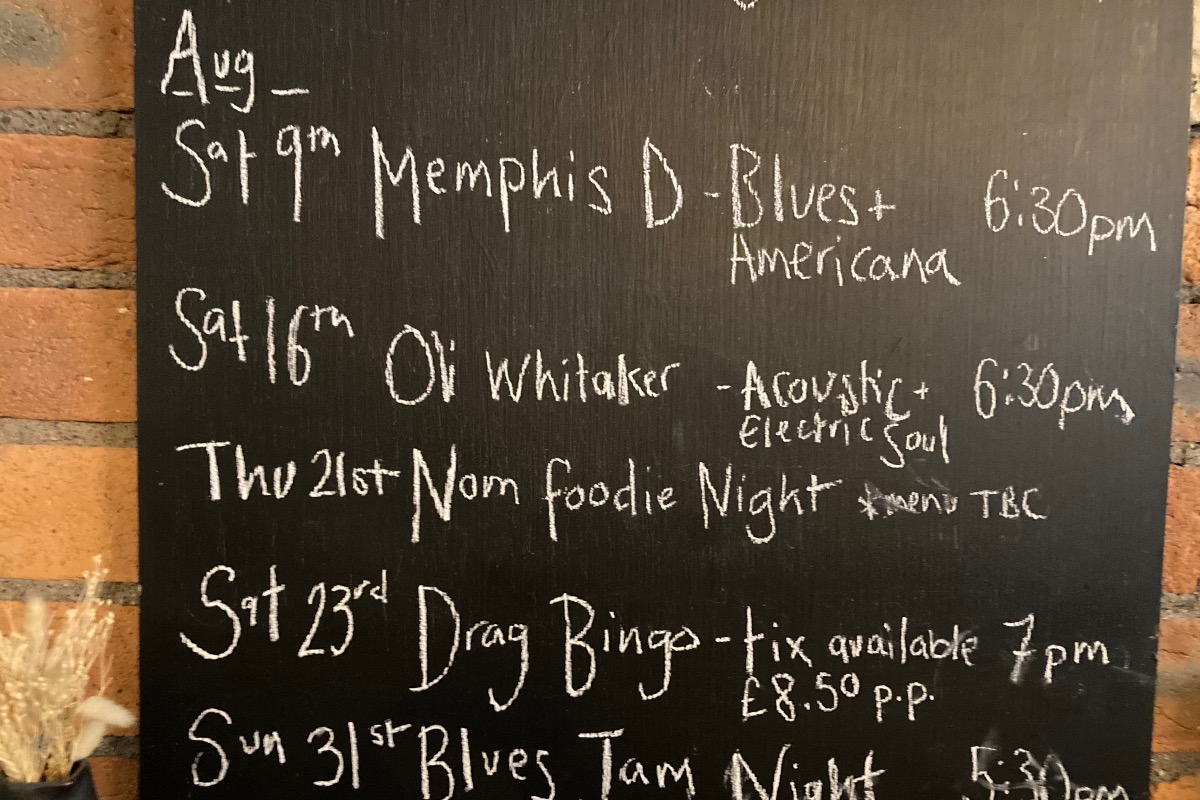 Aug_
Sat 9th Memphis D - Blues + 6:30pm
Americana
Sat 16th Oli Whitaker - Acoustic + 6:30pm
Electric Soul
Thu 21st Nom foodie Night *menu TBC
Sat 23rd Drag Bingo - tix available 7pm
£8.50 p.p.
Sun 31st Blues Jam Night 5:30pm